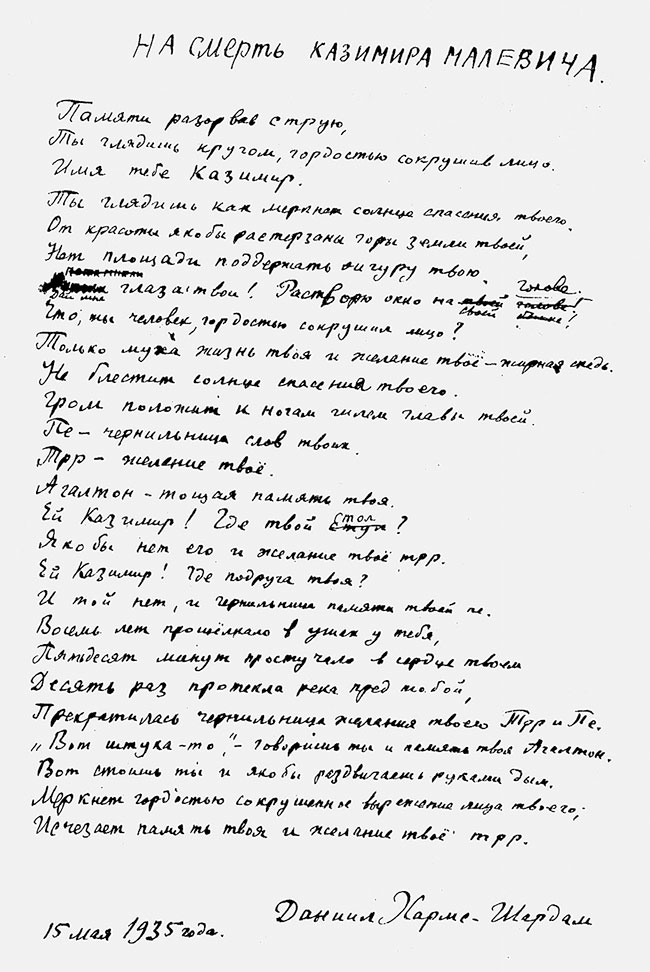 НА СМЕРТЬ КАЗИМИРА МАЛЕВИЧА.
Памяти разорвав струю,
Ты глядишь кругом, гордостью сокрушив лицо.
Имя тебе Казимир.
Ты глядишь как меркнет солнце спасения твоего.
От красоты якобы растерзаны горы земли твоей,
Нет площади поддержать фигуру твою.
Дай мне глаза твои! Растворю окно на своей голове!
Что, ты человек, гордостью сокрушил лицо?
Только муха жизнь твоя и желание твоё – жирная снедь.
Не блестит солнце спасения твоего.
Гром положит к ногам шлем главы твоей.
Пе – чернильница слов твоих.
Трр – желание твоё.
Агалтон – тощая память твоя.
Ей Казимир! Где твой стол?
Якобы нет его и желание твоё трр.
Ей Казимир! Где подруга твоя?
И той нет, и чернильница памяти твоей пе.
Восемь лет прощёлкало в ушах у тебя,
Пятьдесят минут простучало в сердце твоем
Десять раз протекла река пред тобой,
Прекратилась чернильница желания твоего Трр и Пе.
„Вот штука-то", – говоришь ты и память твоя Агалтон.
Вот стоишь ты и якобы раздвигаешь руками дым.
Меркнет гордостью сокрушенное выражение лица твоего;
Исчезает память твоя и желание твоё трр.
Даниил Хармс-Шардам
15 мая 1935 года.